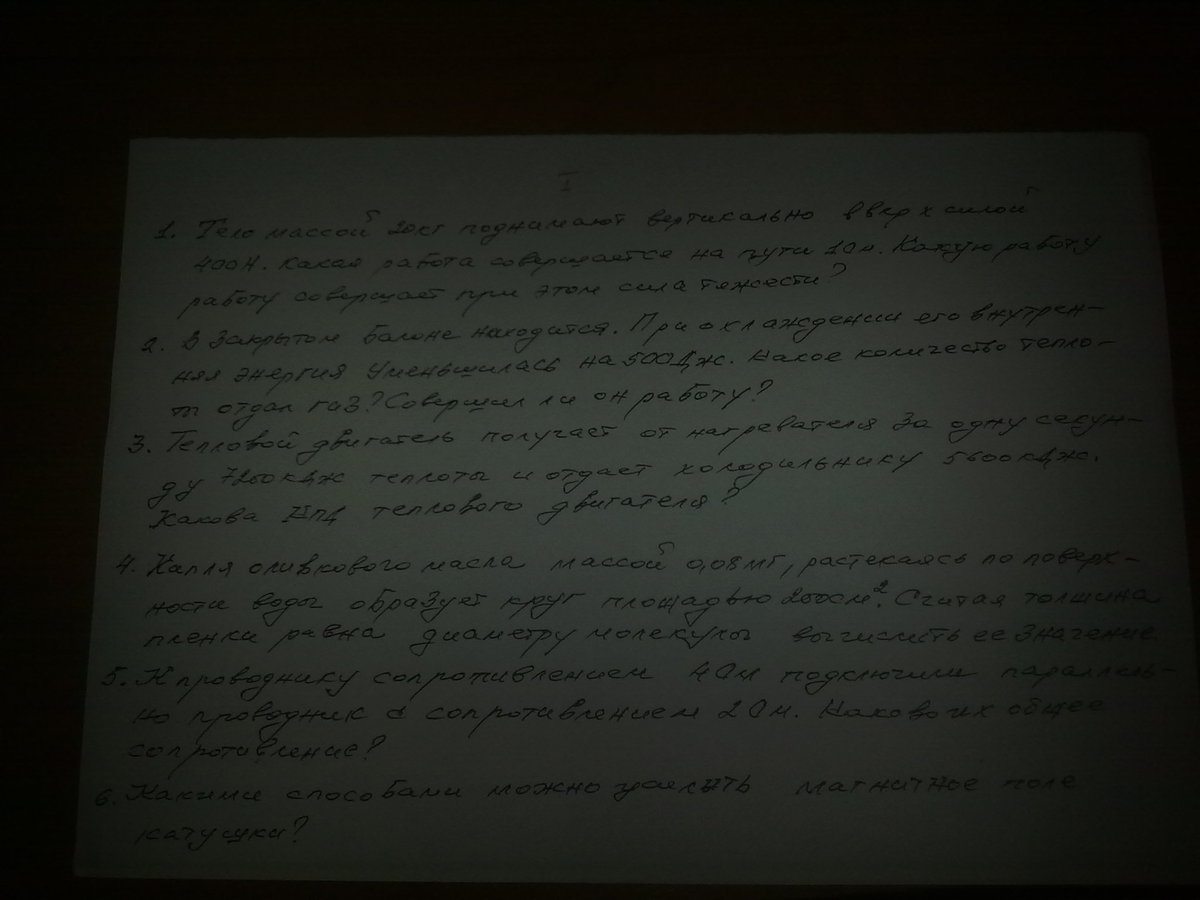 I
1. Тело массой 20кг поднимают вертикально вверх силой
400Н. Какая работа совершается на пути 10м. Какую работу
работу совершает при этом сила тяжести?
2. В закрытом балоне находится. При охлаждении его внутрен-
няя энергия уменьшилась на 500Дж. Какое количество тепло-
ты отдал газ? Совершил ли он работу?
3. Тепловой двигатель получает от нагревателя за одну секун-
ду 7200кДж теплоты и отдает холодильнику 5600кДж.
Какова КПД теплового двигателя?
4. Капля оливкового масла массой 0,08мг, растекаясь по поверх-
ности воды образует круг площадью 200см². Считая толщина
пленки равна диаметру молекулы вычислить ее значение
5. К проводнику сопротивлением 4Ом подключили параллель-
но проводник с сопротивлением 2Ом. Каково их общее
сопротивление?
6. Какими способами можно усилить магнитное поле
катушки?